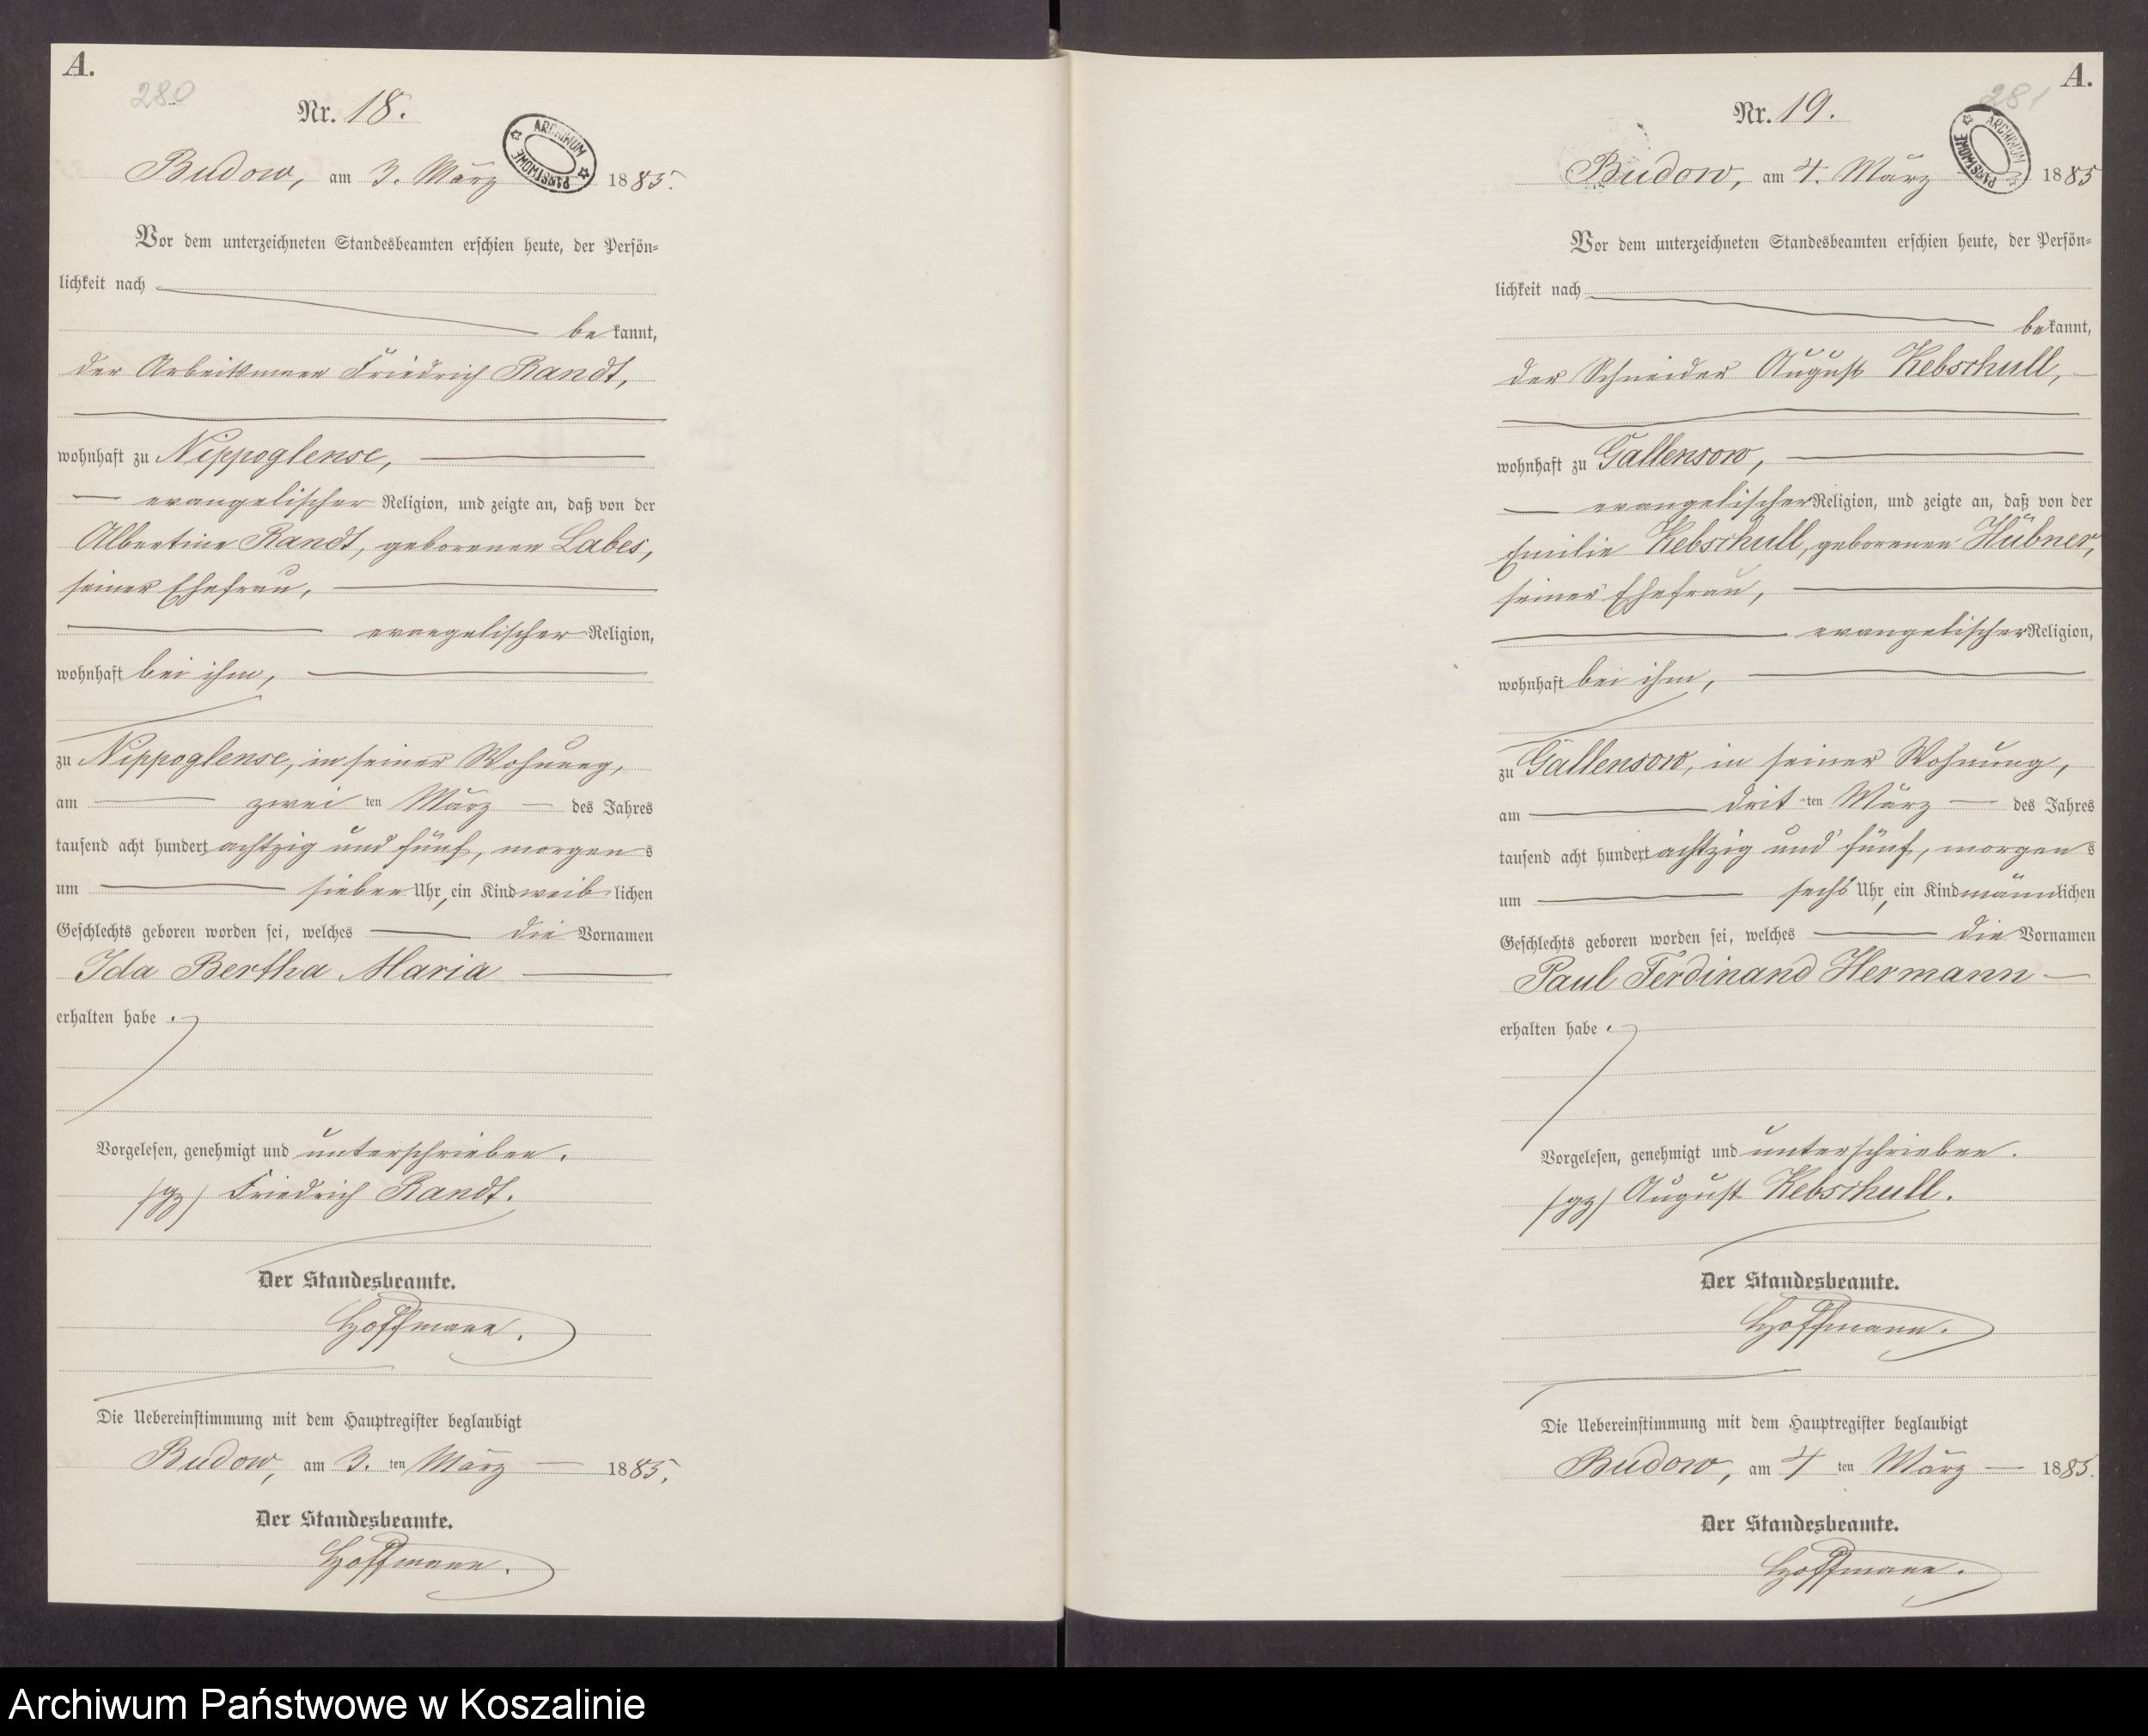 A.
280
Nr. 18.
ARCHIWUM PAŃSTWOWE
Budow, am 3. März 1885.
Vor dem unterzeichneten Standesbeamten erschien heute, der Persön=
lichkeit nach
bekannt,
der Arbeitsmann Friedrich Randt,
wohnhaft zu Nippoglense,
evangelischer Religion, und zeigte an, daß von der
Albertine Randt, geborenen Labes,
seiner Ehefrau,
evangelischer Religion,
wohnhaft bei ihm,
zu Nippoglense, in seiner Wohnung,
am zwei ten März des Jahres
tausend acht hundert achtzig und fünf, morgens
um sieben Uhr, ein Kind weiblichen
Geschlechts geboren worden sei, welches die Vornamen
Ida Bertha Maria
erhalten habe.
Vorgelesen, genehmigt und unterschrieben.
(gz) Friedrich Randt.
Der Standesbeamte.
Hoffmann.
Die Uebereinstimmung mit dem Hauptregister beglaubigt
Budow, am 3. ten März 1885.
Der Standesbeamte.
Hoffmann.
A.
281
Nr. 19.
ARCHIWUM PAŃSTWOWE
Budow, am 4. März 1885
Vor dem unterzeichneten Standesbeamten erschien heute, der Persön=
lichkeit nach
bekannt,
der Schneider August Kebschull,
wohnhaft zu Gallensow,
evangelischer Religion, und zeigte an, daß von der
Emilie Kebschull, geborenen Hübner,
seiner Ehefrau,
evangelischer Religion,
wohnhaft bei ihm,
zu Gallensow, in seiner Wohnung,
am drit ten März des Jahres
tausend acht hundert achtzig und fünf, morgens
um sechs Uhr, ein Kind männlichen
Geschlechts geboren worden sei, welches die Vornamen
Paul Ferdinand Hermann
erhalten habe.
Vorgelesen, genehmigt und unterschrieben.
(gz) August Kebschull.
Der Standesbeamte.
Hoffmann.
Die Uebereinstimmung mit dem Hauptregister beglaubigt
Budow, am 4 ten März 1885.
Der Standesbeamte.
Hoffmann.
Archiwum Państwowe w Koszalinie